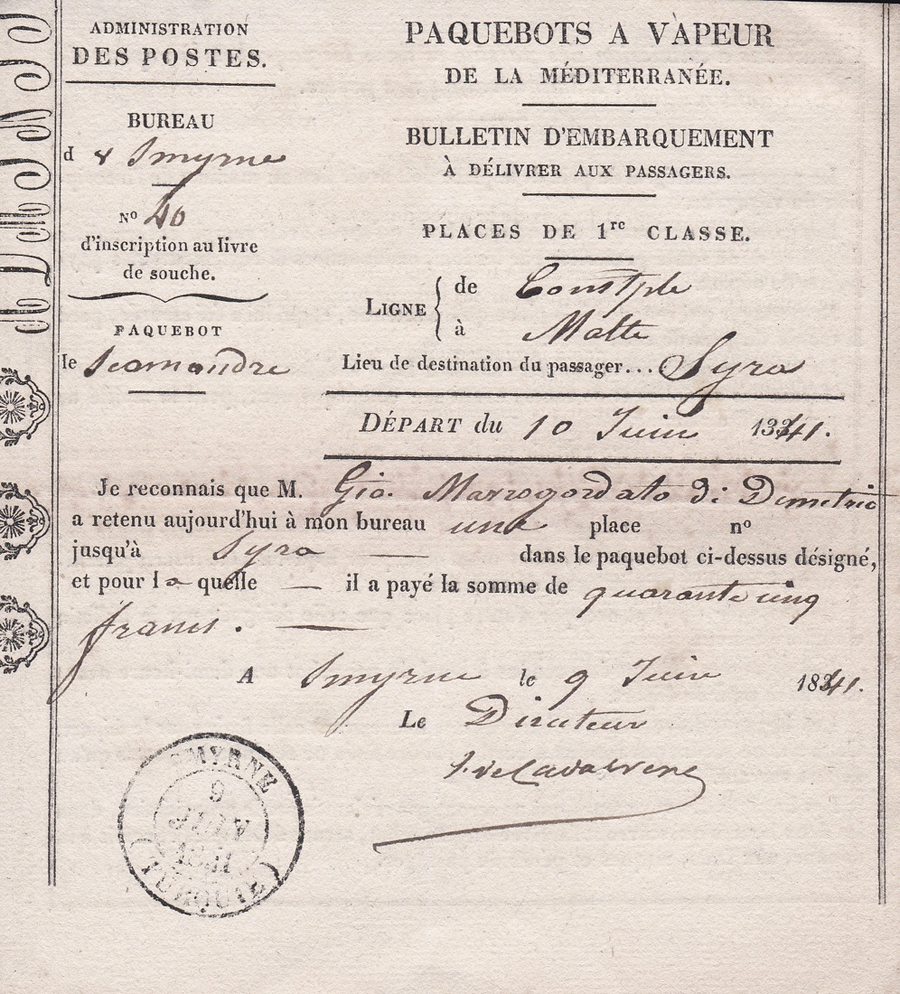 ADMINISTRATION
DES POSTES.
BUREAU
d e Smyrne
N° 40
d'inscription au livre
de souche.
PAQUEBOT
le Scamandre
PAQUEBOTS A VAPEUR
DE LA MÉDITERRANÉE.
BULLETIN D'EMBARQUEMENT
À DÉLIVRER AUX PASSAGERS.
PLACES DE 1re CLASSE.
LIGNE { de Constple
à Malte
Lieu de destination du passager... Syra
DÉPART du 10 Juin 1841.
Je reconnais que M. Gio. Mavrogordato di Demetrio
a retenu aujourd'hui à mon bureau une place n°
jusqu'à Syra — dans le paquebot ci-dessus désigné,
et pour la quelle — il a payé la somme de quarante cinq
francs. —
A Smyrne le 9 Juin 1841.
Le Directeur
SMYRNE
9
(TURQUIE)